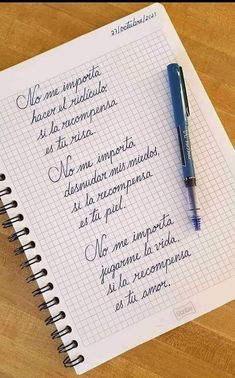 27/octubre/2021
No me importa
hacer el ridículo
si la recompensa
es tu risa.
No me importa
desnudar mis miedos,
si la recompensa
es tu piel.
No me importa
jugarme la vida,
si la recompensa
es tu amor.